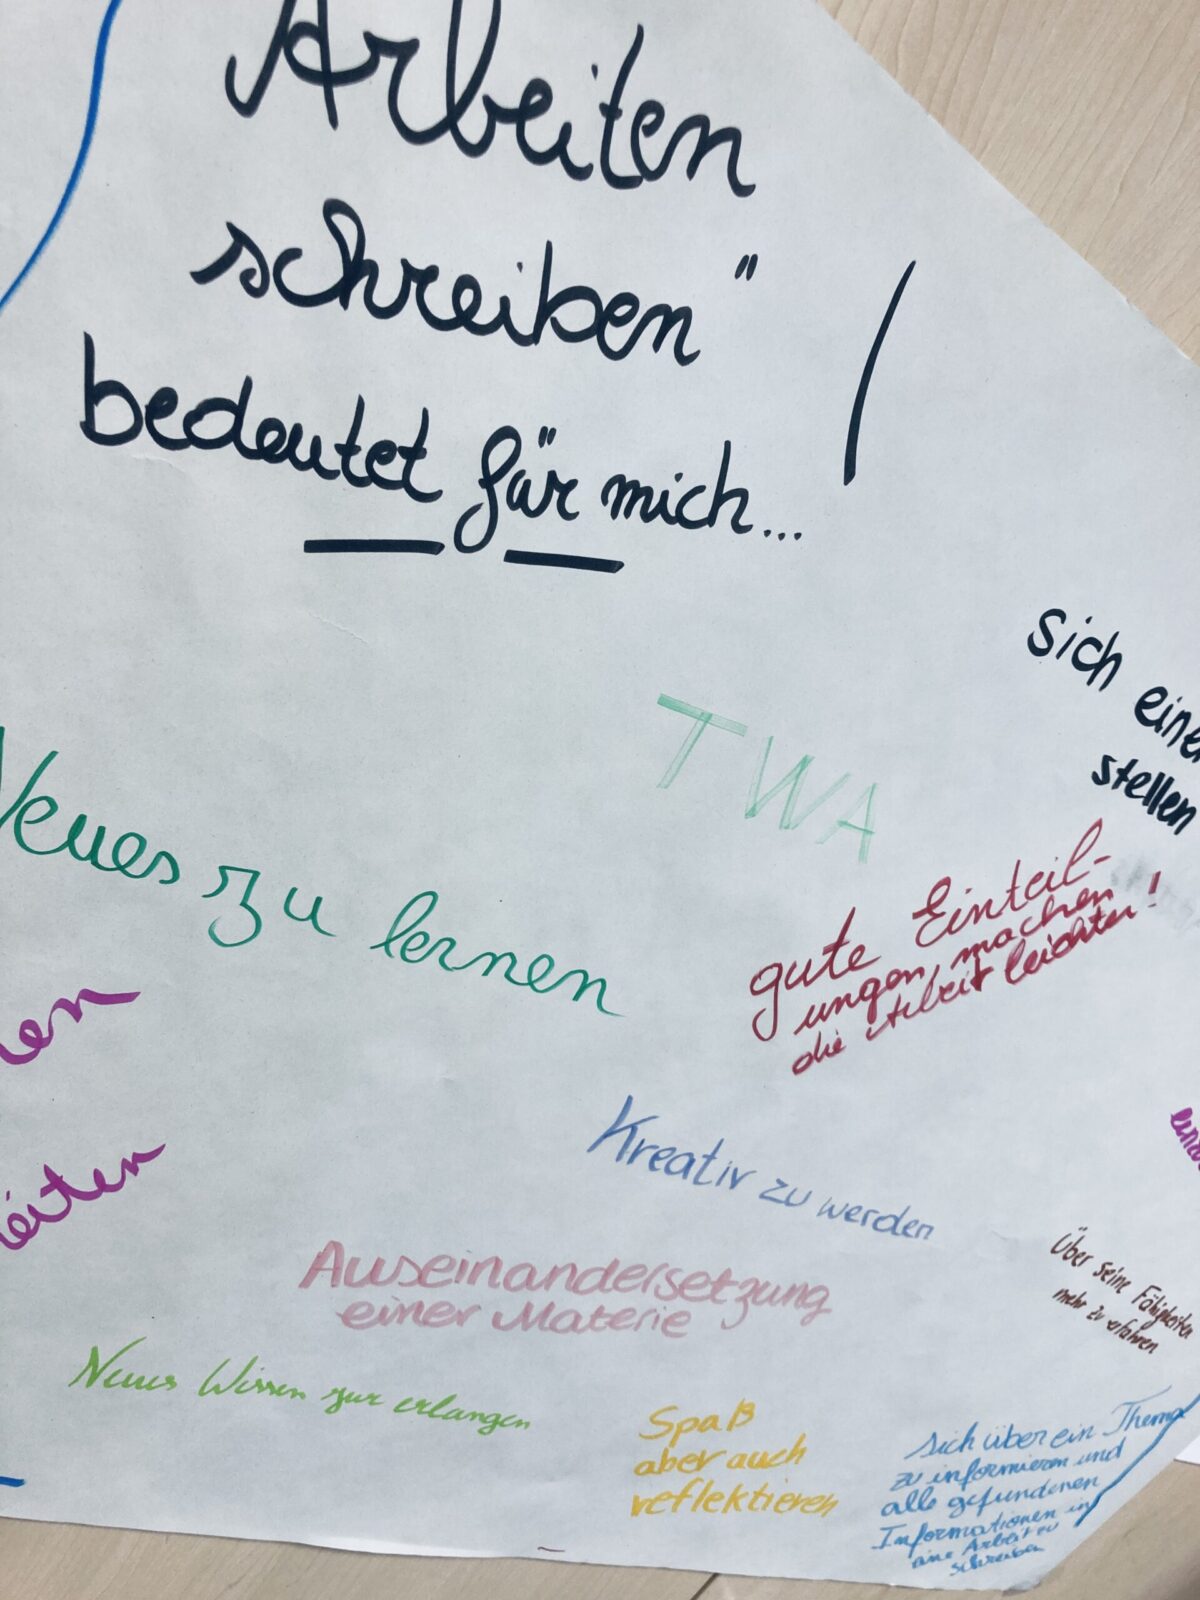 Arbeiten
schreiben"
bedeutet für mich...
sich eine
stellen
TWA
Neues zu lernen
gute Einteil-
ungen machen
die Arbeit leichter!
en
eiten
Kreativ zu werden
Über seine Fähigkeiten
mehr zu erfahren
Auseinandersetzung
einer Materie
Neues Wissen zur erlangen
Spaß
aber auch
reflektieren
sich über ein Thema
zu informieren und
alle gefundenen
Informationen in
eine Arbeit zu
schreiben